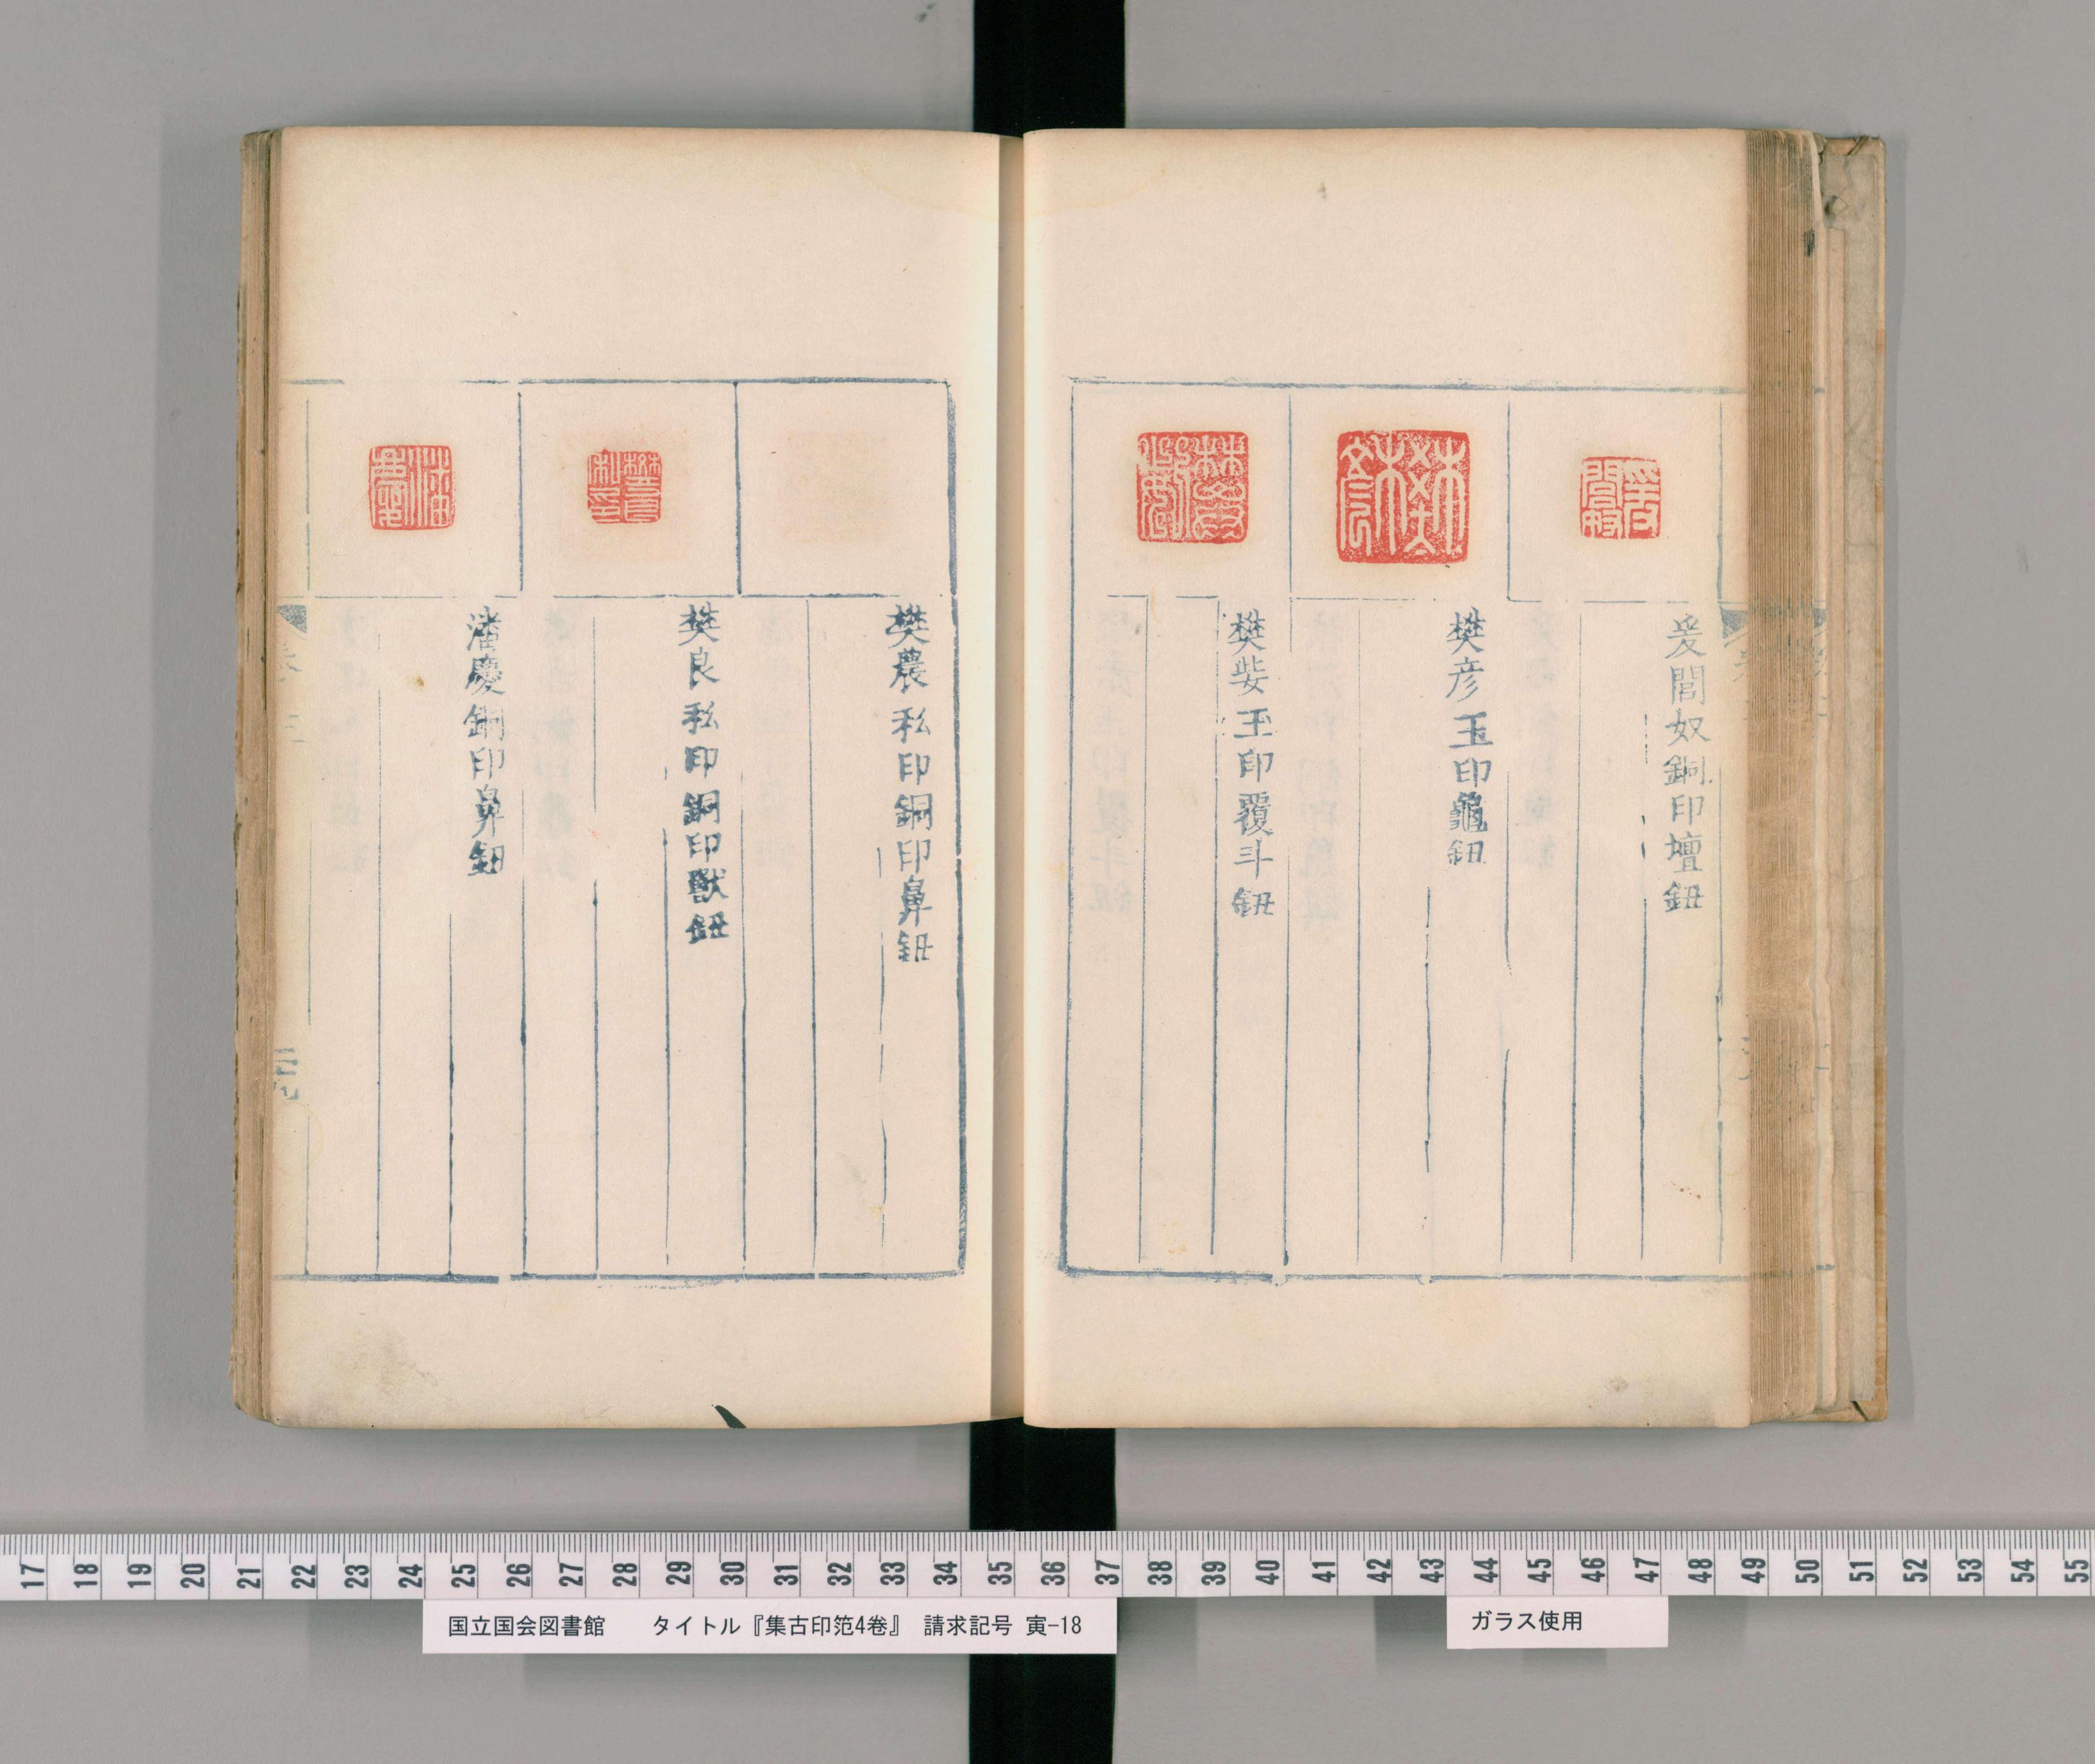 爰閭奴銅印壇鈕
樊彦玉印龜鈕
樊玉印覆斗鈕
樊農私印銅印鼻鈕
樊良私印銅印獸鈕
潘慶銅印鼻鈕
17 18 19 20 21 22 23 24 25 26 27 28 29 30 31 32 33 34 35 36 37 38 39 40 41 42 43 44 45 46 47 48 49 50 51 52 53 54 55
国立国会図書館 タイトル『集古印笵4巻』 請求記号 寅-18
ガラス使用